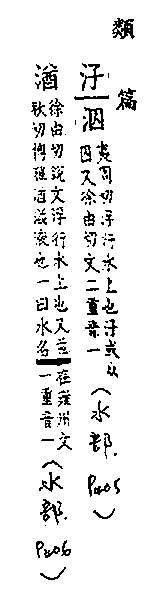 類篇
汓泅
夷周切浮行水上也汓或从
囚又徐由切文二重音一
(水部.P405)
湭
徐由切說文浮行水上也又茲
秋切博雅湭滋液也一曰水名
在雍州文
一重音一
(水部.P406)